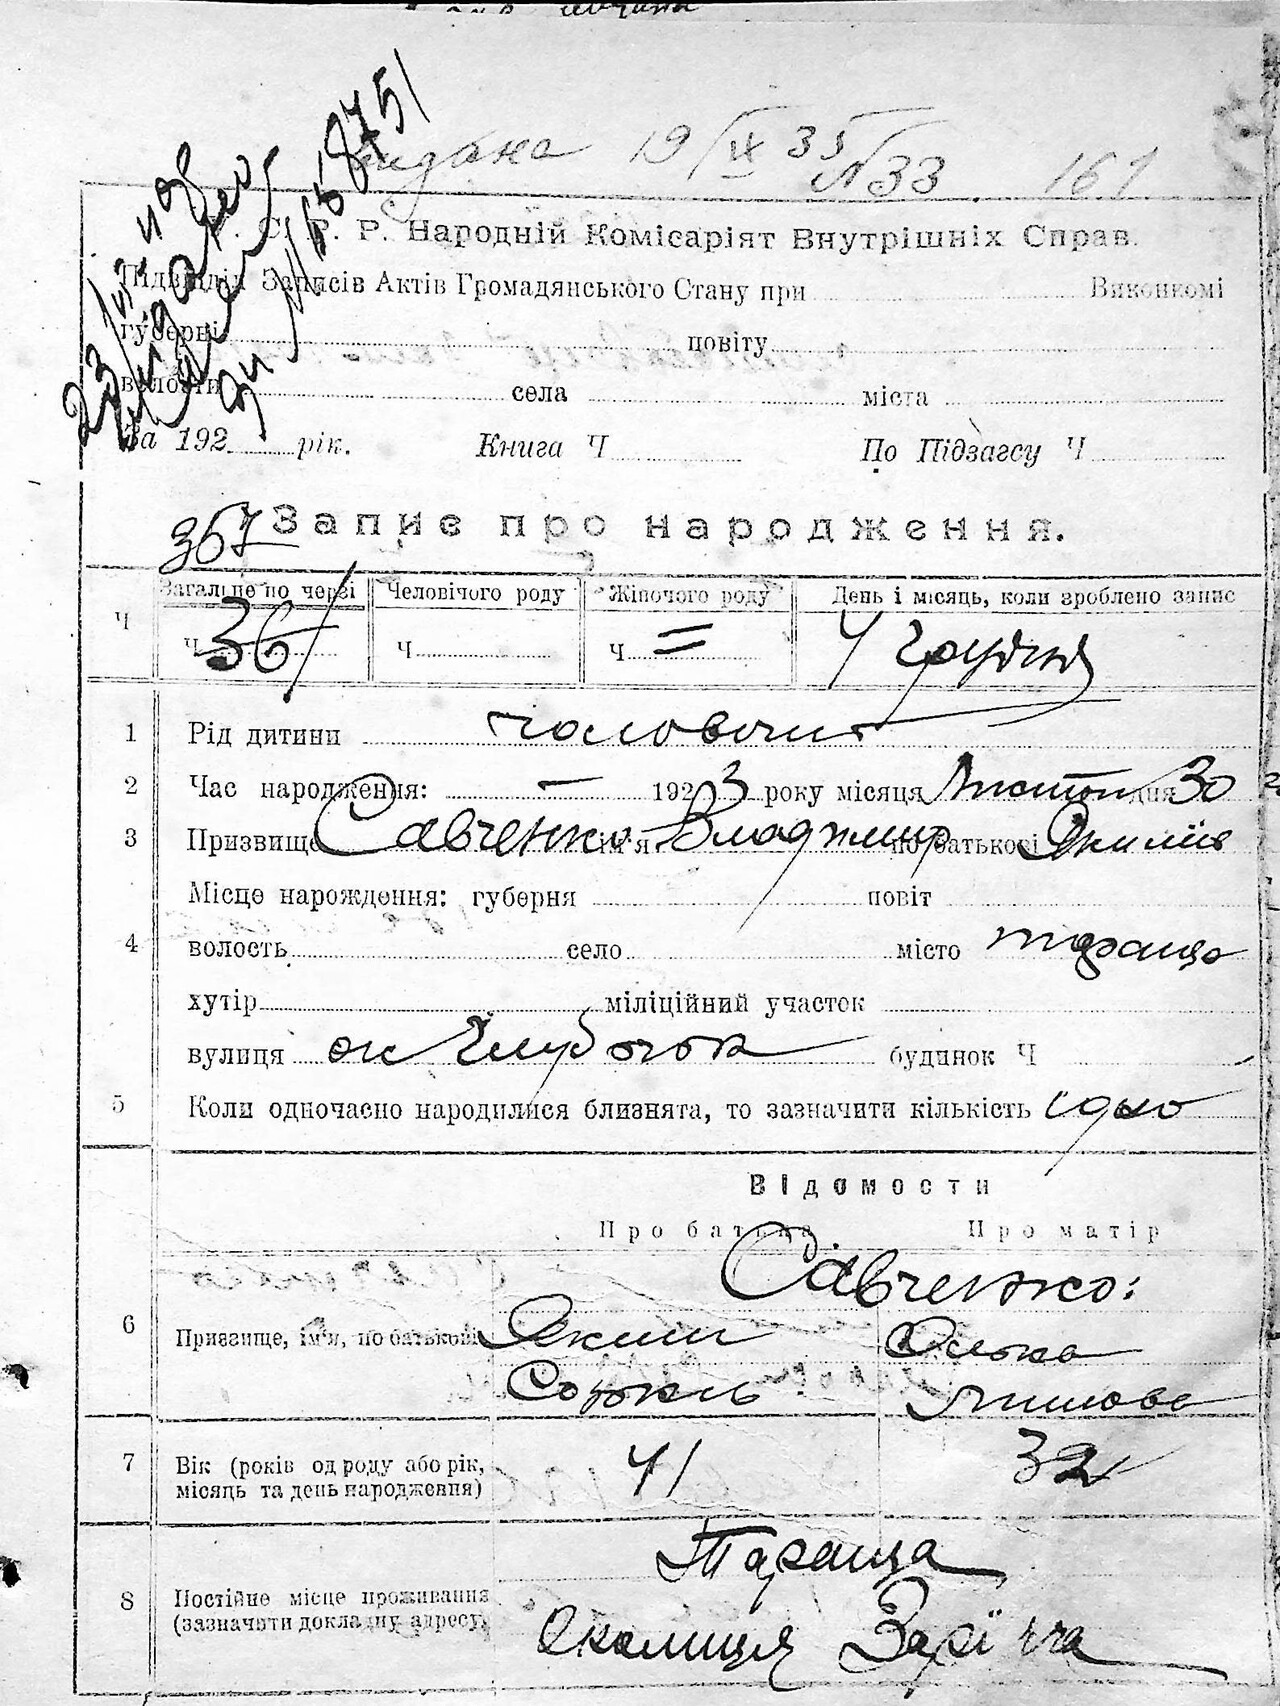 видана 19/IX 35 N 33 161
У. С. Р. Р. Народній Комісаріят Внутрішніх Справ.
Підвідділ Записів Актів Громадянського Стану при Виконкомі
губерні повіту
волости села міста
За 192 рік. Книга Ч По Підзагсу Ч
367 Запис про народження.
Загальне по черзі Человічого роду Жіночого роду День і місяць, коли зроблено запис
Ч Ч 361 Ч Ч = 4 грудня
1 Рід дитини чоловічий
2 Час народження: — 1923 року місяця Листоп дня 30
3 Призвище Савченко ім'я Владжмир по батькові Якимів
Місце народження: губерня повіт
4 волость село місто тараща
хутір міліційний участок
вулиця будинок Ч
5 Коли одночасно народилися близнята, то зазначити кількість одно
Відомости
Про батька Про матір
Савченко:
6 Призвище, ім'я, по батькові Яким Олька
7 Вік (років од роду або рік, 41 32
місяць та день народження)
Тараща
8 Постійне місце проживання
(зазначити докладну адресу) Околиця Зарічча